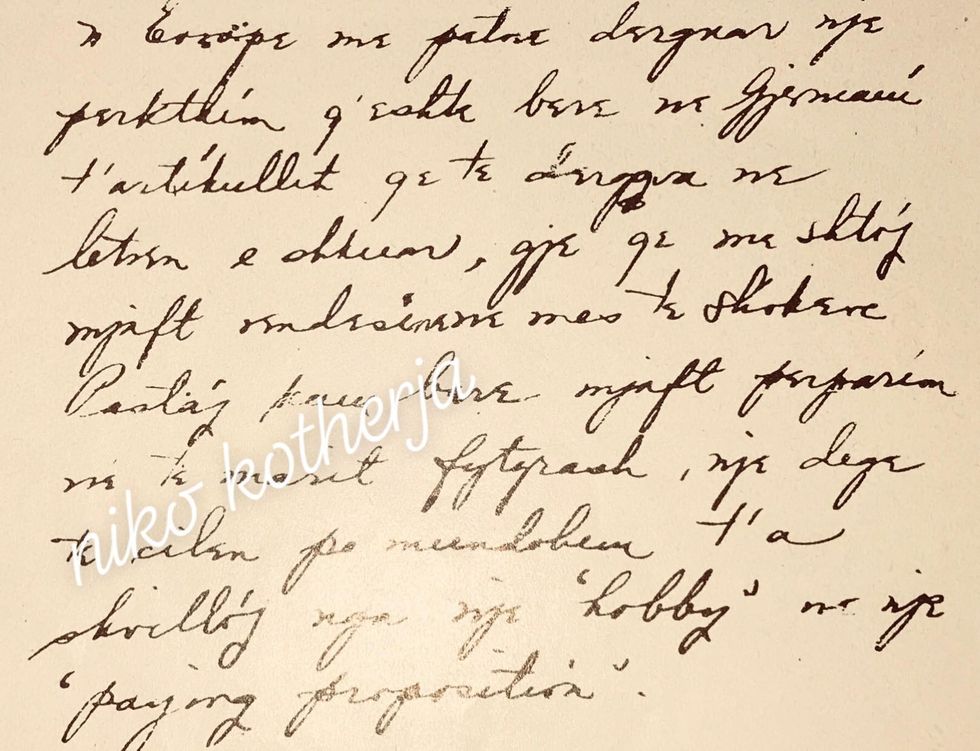 n Evrope me patne derguar nje
perkthim q'eshte bere ne Gjermani
t'artikullit qe te dergova ne
letren e shkuar, gje qe me shtoj
mjaft rendesine mes te shokeve
Pastaj kam bere mjaft perparim
ne te marit fytyrash, nje dege
te cilen po mundohem t'a
skvilloj nga nje 'hobby' ne nje
'paying proposition'.
niko kotherja